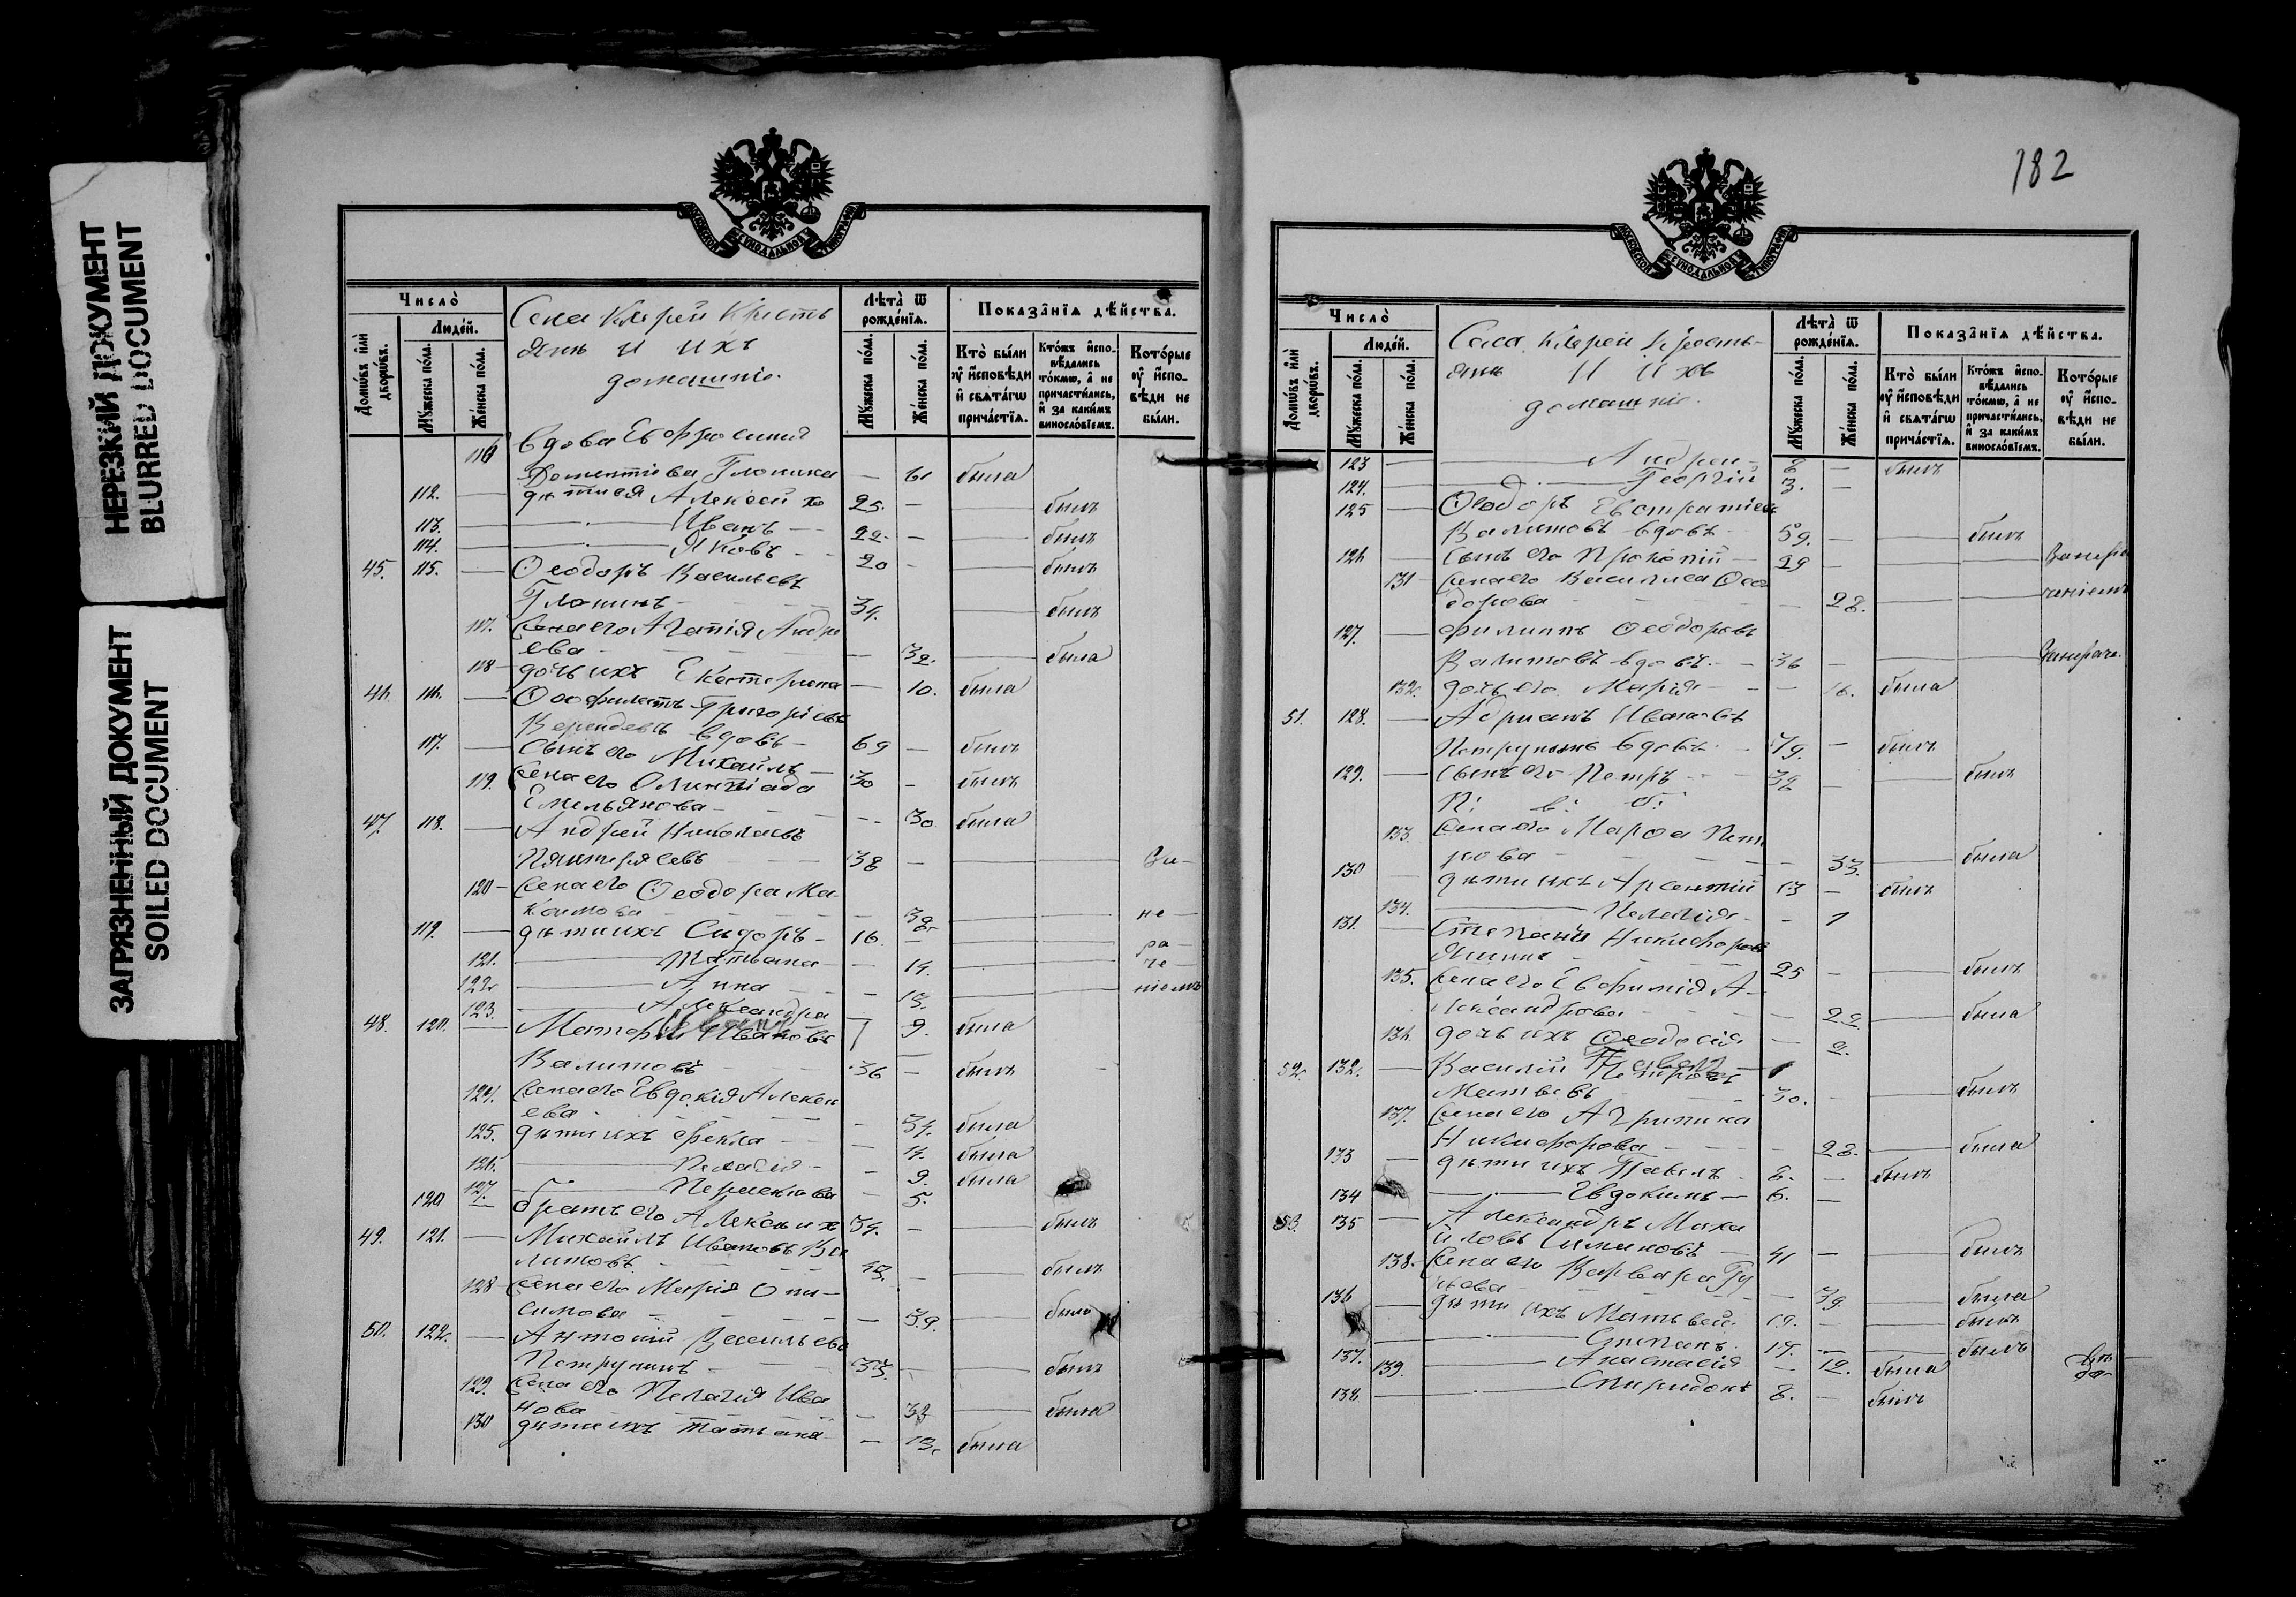 НЕРЕЗКИЙ ДОКУМЕНТ
BLURRED DOCUMENT
ЗАГРЯЗНЕННЫЙ ДОКУМЕНТ
SOILED DOCUMENT
МОСКОВСКОЙ СѴНОДАЛЬНОЙ ТИПОГРАФІИ
Число̀
Домѡ́въ и҆лѝ дворѡ́въ.
Люде́й.
Мꙋ́жеска по́ла.
Же́нска по́ла.
Села Кляреи Кресть
янъ и ихъ
домашніе.
Лѣта̀ ѿ рожде́нїѧ.
Мꙋ́жеска по́ла.
Же́нска по́ла.
Показа̑нїѧ дѣ́йства.
Кто̀ бы́ли оу҆ и҆сповѣ́ди и҆ свѧта́гѡ прича́стїѧ.
Кто́жъ и҆спо-вѣ́дались то́кмѡ, а҆ не причасти́лись, и҆ за каки́мъ винослов́їемъ.
Кото́рые оу҆ и҆спо-вѣ́ди не бы́ли.
116 вдова Евфросинія
Дометіева — 61 была
112. — дѣти ея Алексѣй 25. — былъ
113. — Иванъ 22. — былъ
114. — Яковъ 20 — былъ
45. 115. — Ѳеодоръ Васильевъ
34. былъ
117. жена его Агапія Андре
ева — 32. — была
118 дочь ихъ Екатерина — 10. была
46. 116. — Ѳеофилактъ Григорьевъ
вдовъ 69 — былъ
117. — сынъ его Михаилъ 30 — былъ
119. жена его Олимпіада
Емельянова — 30 была
47. 118. — Андрей Николаевъ
38 — За-
120 жена его Ѳеодора Ма
38. не
119. — дѣти ихъ Сидоръ 16. — ра
121. Татьяна — 14. че
122. Анна — 13. ніемъ
123. Александра 9. была
48. 120. — Ивановъ
Валитовъ 36 — былъ
124. жена его Евдокія Алексѣ
ева — 34. была
125. дѣти ихъ Ѳекла — 14. была
126. Пелагія — 9. была
127. Параскева — 5.
120 братъ его Алексѣй 34. — былъ
49. 121. — Михаилъ Ивановъ Ва
литовъ 43. — былъ
128 жена его Марія Они
симова — 39. была
50. 122. — Антоній Васильевъ
Петрунинъ 33. — былъ
129. жена его Пелагія Ива
нова — 33 была
130 дѣти ихъ Татьяна — 13. была
182
МОСКОВСКОЙ СѴНОДАЛЬНОЙ ТИПОГРАФІИ
Число̀
Домѡ́въ и҆лѝ дворѡ́въ.
Люде́й.
Мꙋ́жеска по́ла.
Же́нска по́ла.
Села Кляреи Кресть-
янъ и ихъ
домашніе.
Лѣта̀ ѿ рожде́нїѧ.
Мꙋ́жеска по́ла.
Же́нска по́ла.
Показа̑нїѧ дѣ́йства.
Кто̀ бы́ли оу҆ и҆сповѣ́ди и҆ свѧта́гѡ прича́стїѧ.
Кто́жъ и҆спо-вѣ́дались то́кмѡ, а҆ не причасти́лись, и҆ за каки́мъ винослов́їемъ.
Кото́рые оу҆ и҆спо-вѣ́ди не бы́ли.
123 — Андрей 8 — былъ
124. — Георгій 3. —
125 — Ѳеодоръ Евстратіевъ
Валитовъ вдовъ 59. — былъ
126 сынъ его Прокопій 29 — Занера
131 жена его Василиса Ѳео
дорова — 28. — ченіемъ
127. — Филиппъ Ѳеодоровъ
Валитовъ вдовъ 36 — Занераче.
132. дочь его Марія — 16. была
51. 128. — Адріанъ Ивановъ
Петрунинъ вдовъ 79. — былъ
129. — сынъ его Петръ 32 — былъ
П: в: б:
133. жена его Марѳа Пет
рова — 33. была
130 дѣти ихъ Арсентій 13 — былъ
134. Пелагія — 1
131. — Стефанъ Никифоровъ
25 — былъ
135. жена его Евфимія А-
лександрова — 22 была
136 дочь ихъ Ѳеодосія — 2.
52. 132. — Василій Петровъ
Матвѣевъ 30. — былъ
137. жена его Агрипина
Никифорова — 28. была
133 — дѣти ихъ Павелъ 8. — былъ
134 — Евдокимъ — 6. —
53. 135 — Александръ Миха
йловъ 41 — былъ
138. жена его Варвара Гу
рьева — 39. была
136 — дѣти ихъ Матвей 19. — былъ
137. Степанъ 14. — былъ
139. Анастасія — 12. была
138. Спиридонъ 8. — былъ